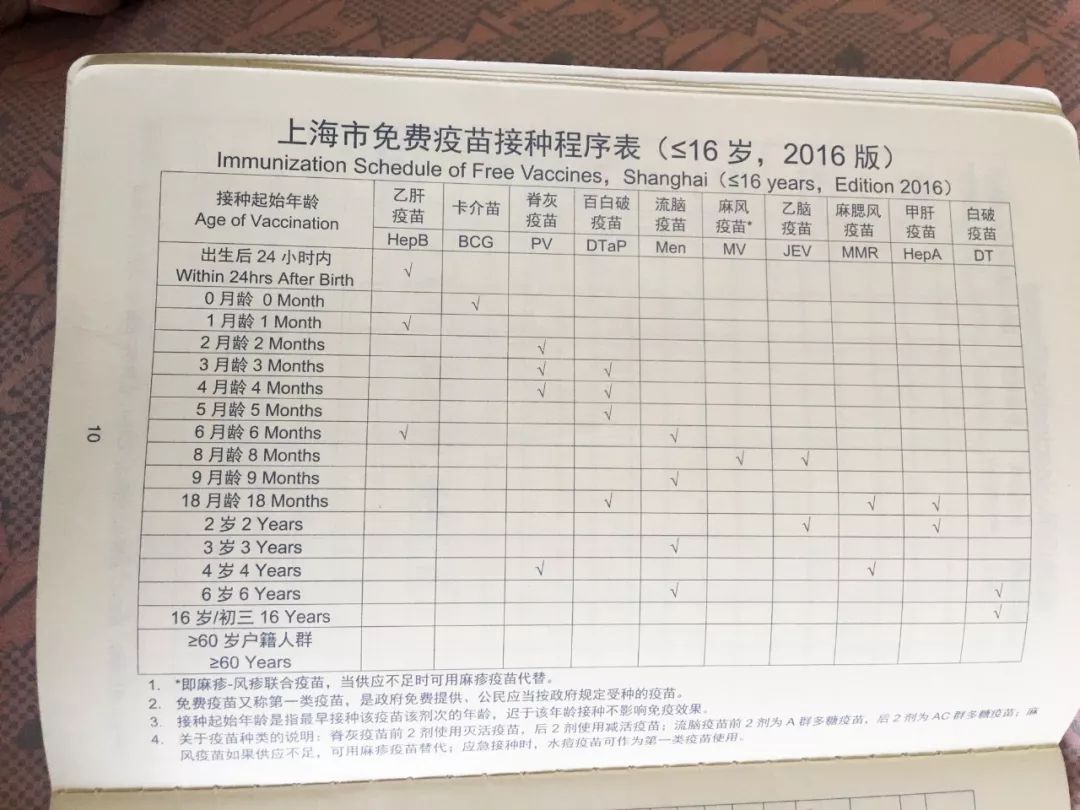 上海市免费疫苗接种程序表（≤16 岁，2016 版）
Immunization Schedule of Free Vaccines, Shanghai（≤16 years, Edition 2016）
接种起始年龄 乙肝 卡介苗 脊灰 百白破 流脑 麻风 乙脑 麻腮风 甲肝 白破
Age of Vaccination 疫苗 疫苗 疫苗 疫苗 疫苗* 疫苗 疫苗 疫苗 疫苗
HepB BCG PV DTaP Men MV JEV MMR HepA DT
出生后 24 小时内
Within 24hrs After Birth √
0 月龄 0 Month √
1 月龄 1 Month √
2 月龄 2 Months √
3 月龄 3 Months √ √
4 月龄 4 Months √ √
5 月龄 5 Months √
6 月龄 6 Months √ √
8 月龄 8 Months √ √
9 月龄 9 Months √
18 月龄 18 Months √ √ √
2 岁 2 Years √ √
3 岁 3 Years √
4 岁 4 Years √ √
6 岁 6 Years √ √
16 岁/初三 16 Years √
≥60 岁户籍人群
≥60 Years
1. *即麻疹-风疹联合疫苗，当供应不足时可用麻疹疫苗代替。
2. 免费疫苗又称第一类疫苗，是政府免费提供、公民应当按政府规定受种的疫苗。
3. 接种起始年龄是指最早接种该疫苗该剂次的年龄，迟于该年龄接种不影响免疫效果。
4. 关于疫苗种类的说明：脊灰疫苗前 2 剂使用灭活疫苗，后 2 剂使用减活疫苗；流脑疫苗前 2 剂为 A 群多糖疫苗，后 2 剂为 AC 群多糖疫苗；麻
风疫苗如果供应不足，可用麻疹疫苗替代；应急接种时，水痘疫苗可作为第一类疫苗使用。
10